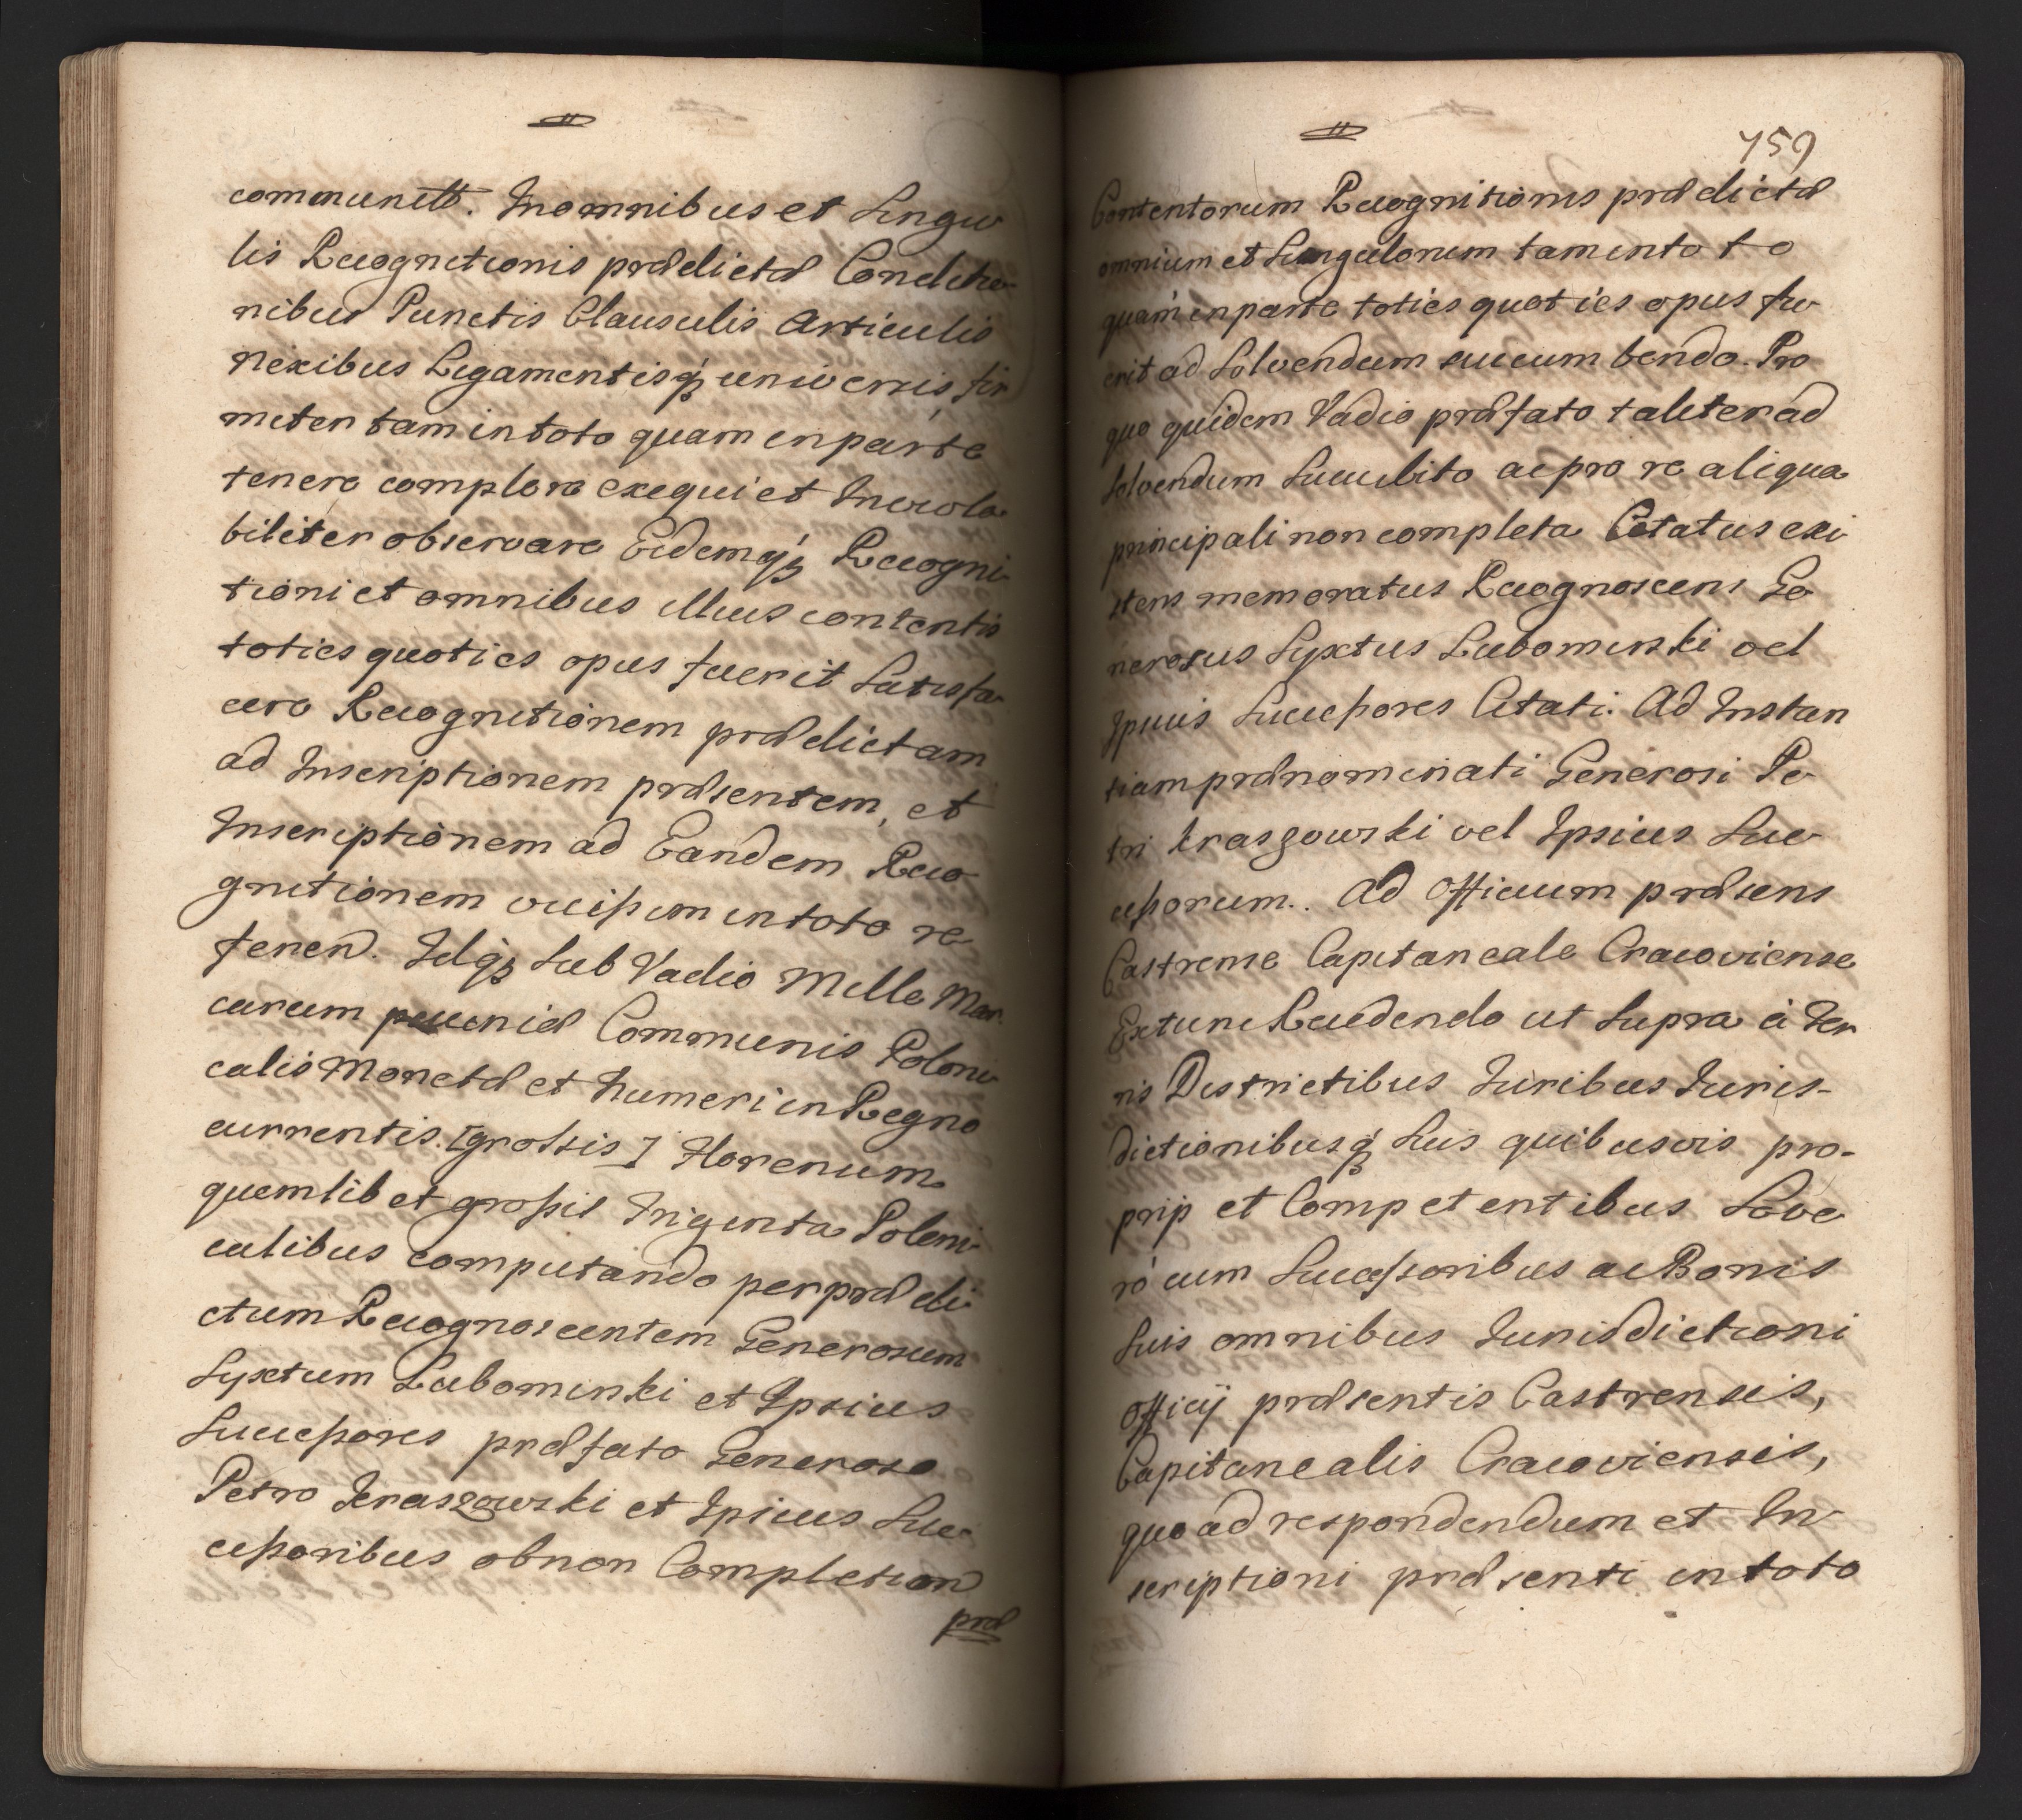 communitt. In omnibus et Singu
lis Recognitionis prædictæ Conditio
nibus Punctis Clausulis Articulis
nexibus Ligamentisq́ʒ universis fir
miter tam in toto quam in parte
tenere complere exequi et Inviola
biliter observare Eidemq́ʒ Recogni
tioni et omnibus illius contentis
toties quoties opus fuerit Satisfa
cere Recognitionem prædictam
ad Inscriptionem præsentem, et
Inscriptionem ad Eandem Reco
gnitionem vicissim in toto re
feren. Idq́ʒ Sub Vadio Mille Mar
carum pecuniæ Communis Poloni
calis Monetæ et Numeri in Regno
currentis. [grossis] Florenum
quemlibet grossis Triginta Poloni
calibus computando per prædi
ctum Recognoscentem Generosum
Syxtum Lubominski et Ipsius
Successores præfato Generoso
Petro Kraszowski et Ipsius Suc
cessoribus ob non Completion
præ
759
Contentorum Recognitionis prædictæ
omnium et Singulorum tam in toto
quam in parte toties quoties opus fu
erit ad Solvendum succumbendo. Pro
quo quidem Vadio præfato taliter ad
Solvendum Succubito ac pro re aliqua
principali non completa Citatus exi
stens memoratus Recognoscens Ge
nerosus Syxtus Lubominski vel
Ipsius Successores Citati. Ad Instan
tiam prænominati Generosi Pe
tri Kraszowski vel Ipsius Suc
cessorum. Ad Officium præsens
Castrense Capitaneale Cracoviense
Extunc Recedendo ut Supra à Ter
ris Districtibus Juribus Juris-
dictionibusq́ʒ Suis quibusvis pro-
prijs et Competentibus Seve
ró cum Successoribus ac Bonis
Suis omnibus Jurisdictioni
Officij præsentis Castrensis,
Capitanealis Cracoviensis,
quo ad respondendum et In
scriptioni præsenti in toto